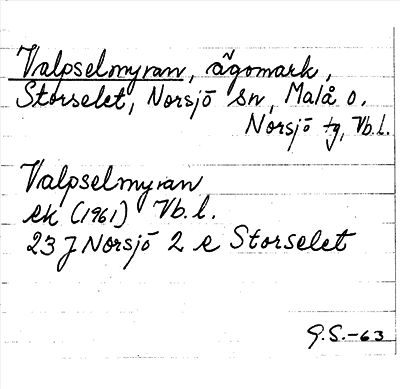 Valpselmyran, ägomark,
Storselet, Norsjö sn, Malå o.
Norsjö tg, Vb.l.
Valpselmyran
ek (1961) Vb.l.
23 J Norsjö 2 e Storselet
G.S.-63